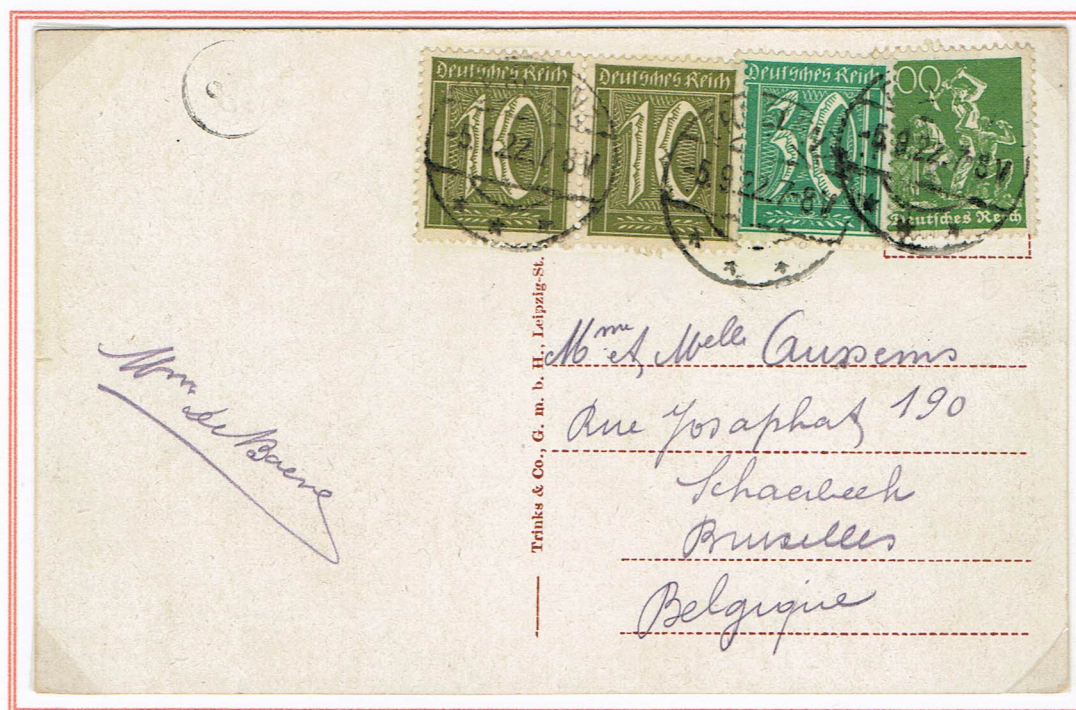 Deutsches Reich
10
Deutsches Reich
10
Deutsches Reich
30
00
Deutsches Reich
-5.9.22.7-8V
-5.9.22.7-8V
-5.9.22.7-8V
Trinks & Co., G. m. b. H., Leipzig-St.
Mme et Melle Aussems
Rue Josaphat 190
Schaerbeek
Bruxelles
Belgique
Mme de Baere